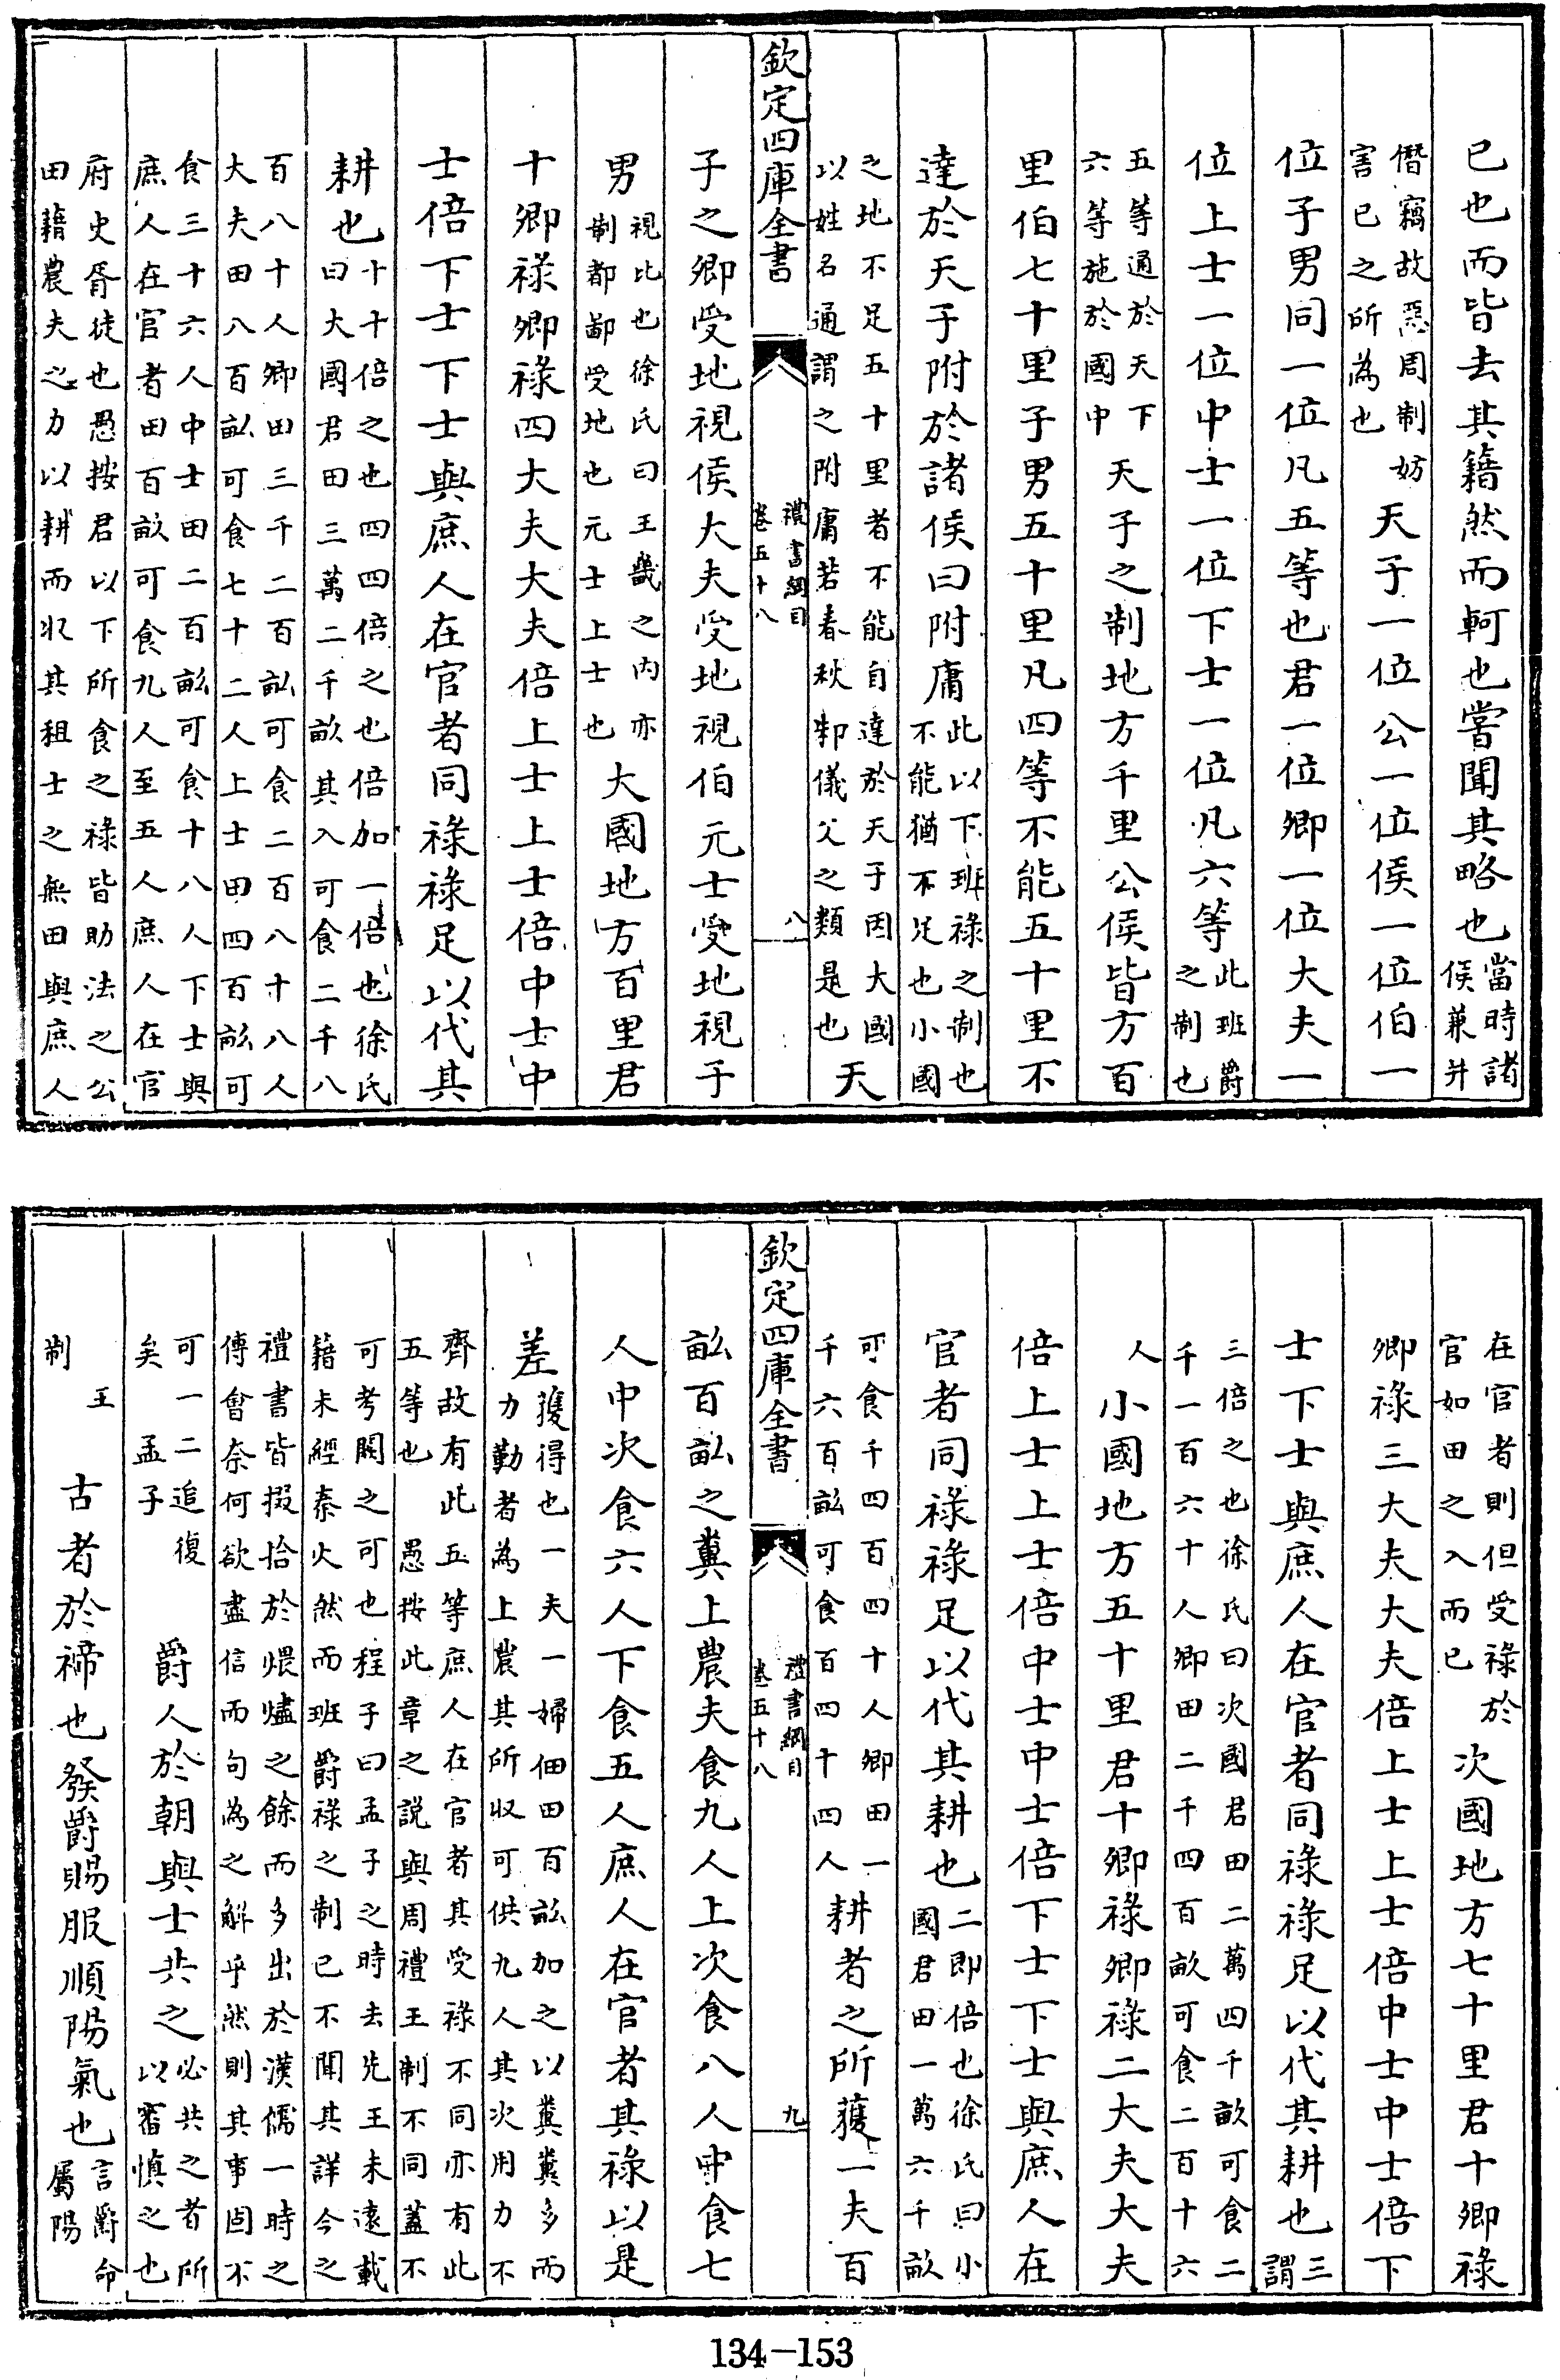 已也而皆去其籍然而軻也嘗聞其略也當時諸侯兼并
僭竊故惡周制妨害已之所為也天子一位公一位侯一位伯一
位子男同一位凡五等也君一位卿一位大夫一
位上士一位中士一位下士一位凡六等此班爵之制也
五等通於天下六等施於國中天子之制地方千里公侯皆方百
里伯七十里子男五十里凡四等不能五十里不
達於天子附於諸侯曰附庸此以下班祿之制也不能猶不足也小國
之地不足五十里者不能自達於天子因大國以姓名通謂之附庸若春秋邾儀父之類是也天
欽定四庫全書
禮書綱目
卷五十八
八
子之卿受地視侯大夫受地視伯元士受地視子
男視比也徐氏曰王畿之内亦制都鄙受地也元士上士也大國地方百里君
十卿祿卿祿四大夫大夫倍上士上士倍中士中
士倍下士下士與庶人在官者同祿祿足以代其
耕也十十倍之也四四倍之也倍加一倍也徐氏曰大國君田三萬二千畝其入可食二千八
百八十人卿田三千二百畝可食二百八十八人大夫田八百畝可食七十二人上士田四百畝可
食三十六人中士田二百畝可食十八人下士與庶人在官者田百畝可食九人至五人庶人在官
府史胥徒也愚按君以下所食之祿皆助法之公田藉農夫之力以耕而收其租士之無田與庶人
在官者則但受祿於官如田之入而已次國地方七十里君十卿祿
卿祿三大夫大夫倍上士上士倍中士中士倍下
士下士與庶人在官者同祿祿足以代其耕也三謂
三倍之也徐氏曰次國君田二萬四千畝可食二千一百六十人卿田二千四百畝可食二百十六
人小國地方五十里君十卿祿卿祿二大夫大夫
倍上士上士倍中士中士倍下士下士與庶人在
官者同祿祿足以代其耕也二即倍也徐氏曰小國君田一萬六千畝
可食千四百四十人卿田一千六百畝可食百四十四人耕者之所獲一夫百
欽定四庫全書
禮書綱目
卷五十八
九
畝百畝之糞上農夫食九人上次食八人中食七
人中次食六人下食五人庶人在官者其祿以是
差獲得也一夫一婦佃田百畝加之以糞糞多而力勤者為上農其所收可供九人其次用力不
齊故有此五等庶人在官者其受祿不同亦有此五等也愚按此章之說與周禮王制不同蓋不
可考闕之可也程子曰孟子之時去先王未遠載籍未經秦火然而班爵祿之制已不聞其詳今之
禮書皆掇拾於煨燼之餘而多出於漢儒一時之傅會奈何欲盡信而句為之解乎然則其事固不
可一二追復矣孟子爵人於朝與士共之必共之者所以審慎之也
王制古者於禘也發爵賜服順陽氣也言爵命屬陽